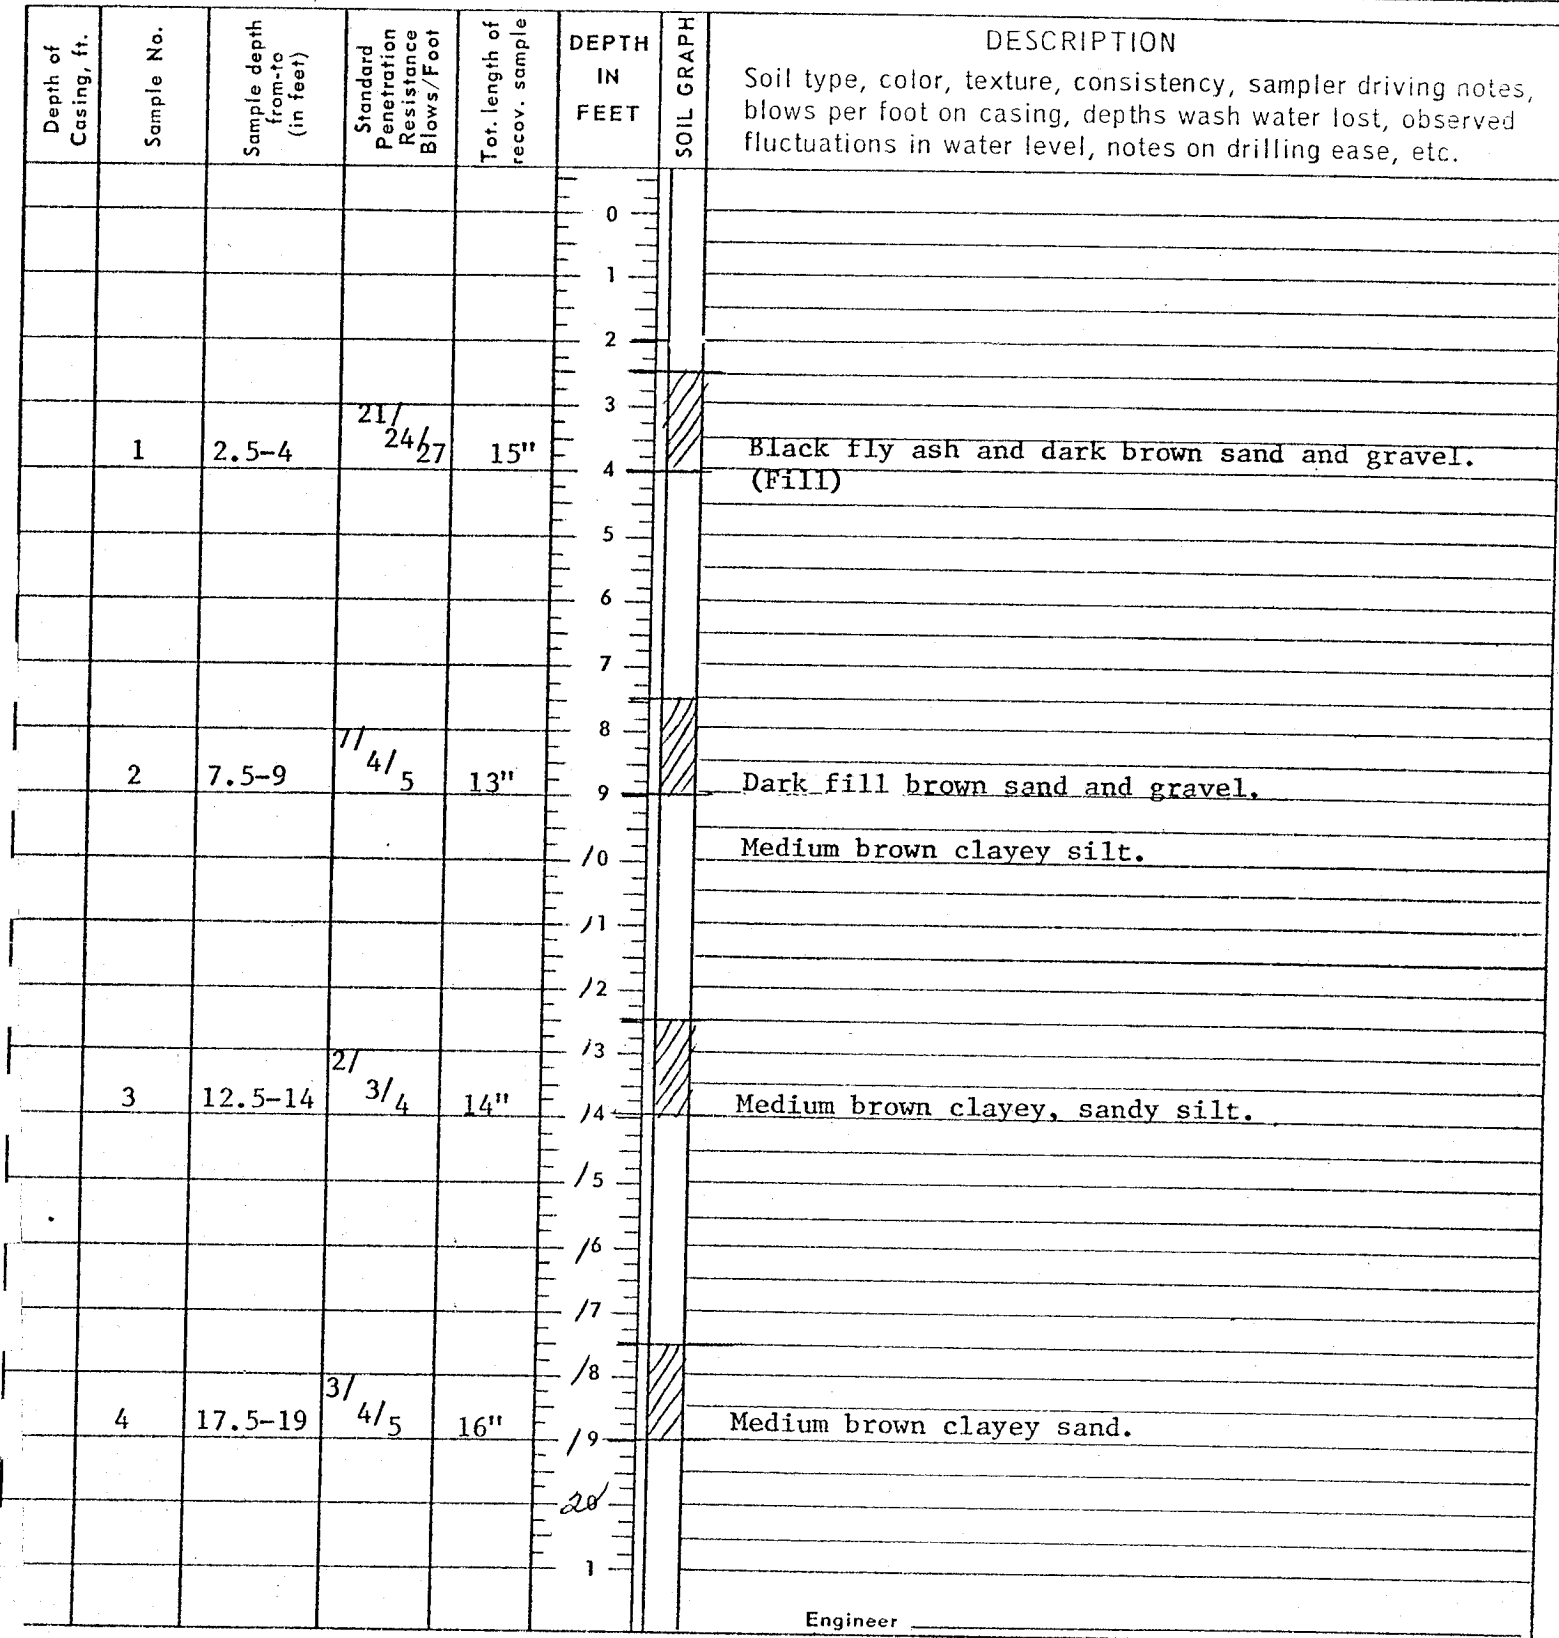 Depth of
Casing, ft.
Sample No.
Sample depth
from-to
(in feet)
Standard
Penetration
Resistance
Blows/Foot
Tot. length of
recov. sample
DEPTH
IN
FEET
SOIL GRAPH
DESCRIPTION
Soil type, color, texture, consistency, sampler driving notes,
blows per foot on casing, depths wash water lost, observed
fluctuations in water level, notes on drilling ease, etc.
0
1
2
3
21/
24/27
1 2.5-4 15" Black fly ash and dark brown sand and gravel.
4
(Fill)
5
6
7
8
4/5
2 7.5-9 13" Dark fill brown sand and gravel.
9
10 Medium brown clayey silt.
11
12
13
2/
3/4
3 12.5-14 14" Medium brown clayey, sandy silt.
14
15
16
17
18
3/
4/5
4 17.5-19 16" Medium brown clayey sand.
19
20
1
Engineer